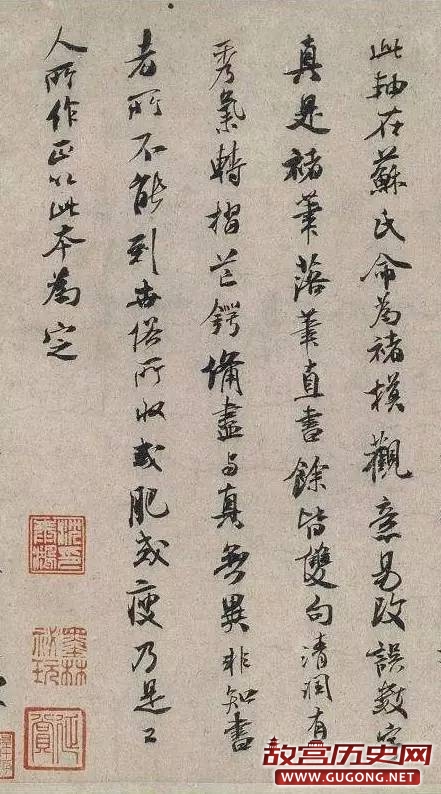 此轴在蘇氏命為褚摸觀意易改誤數字
真是褚筆落筆直書餘皆雙勾清潤有
秀氣轉摺芒鍔備盡与真無異非知書
者所不能到世俗所收或肥或瘦乃是工
人所作正以此本為定
墨林
祕玩
故宫历史网
WWW.GUGONG.NET